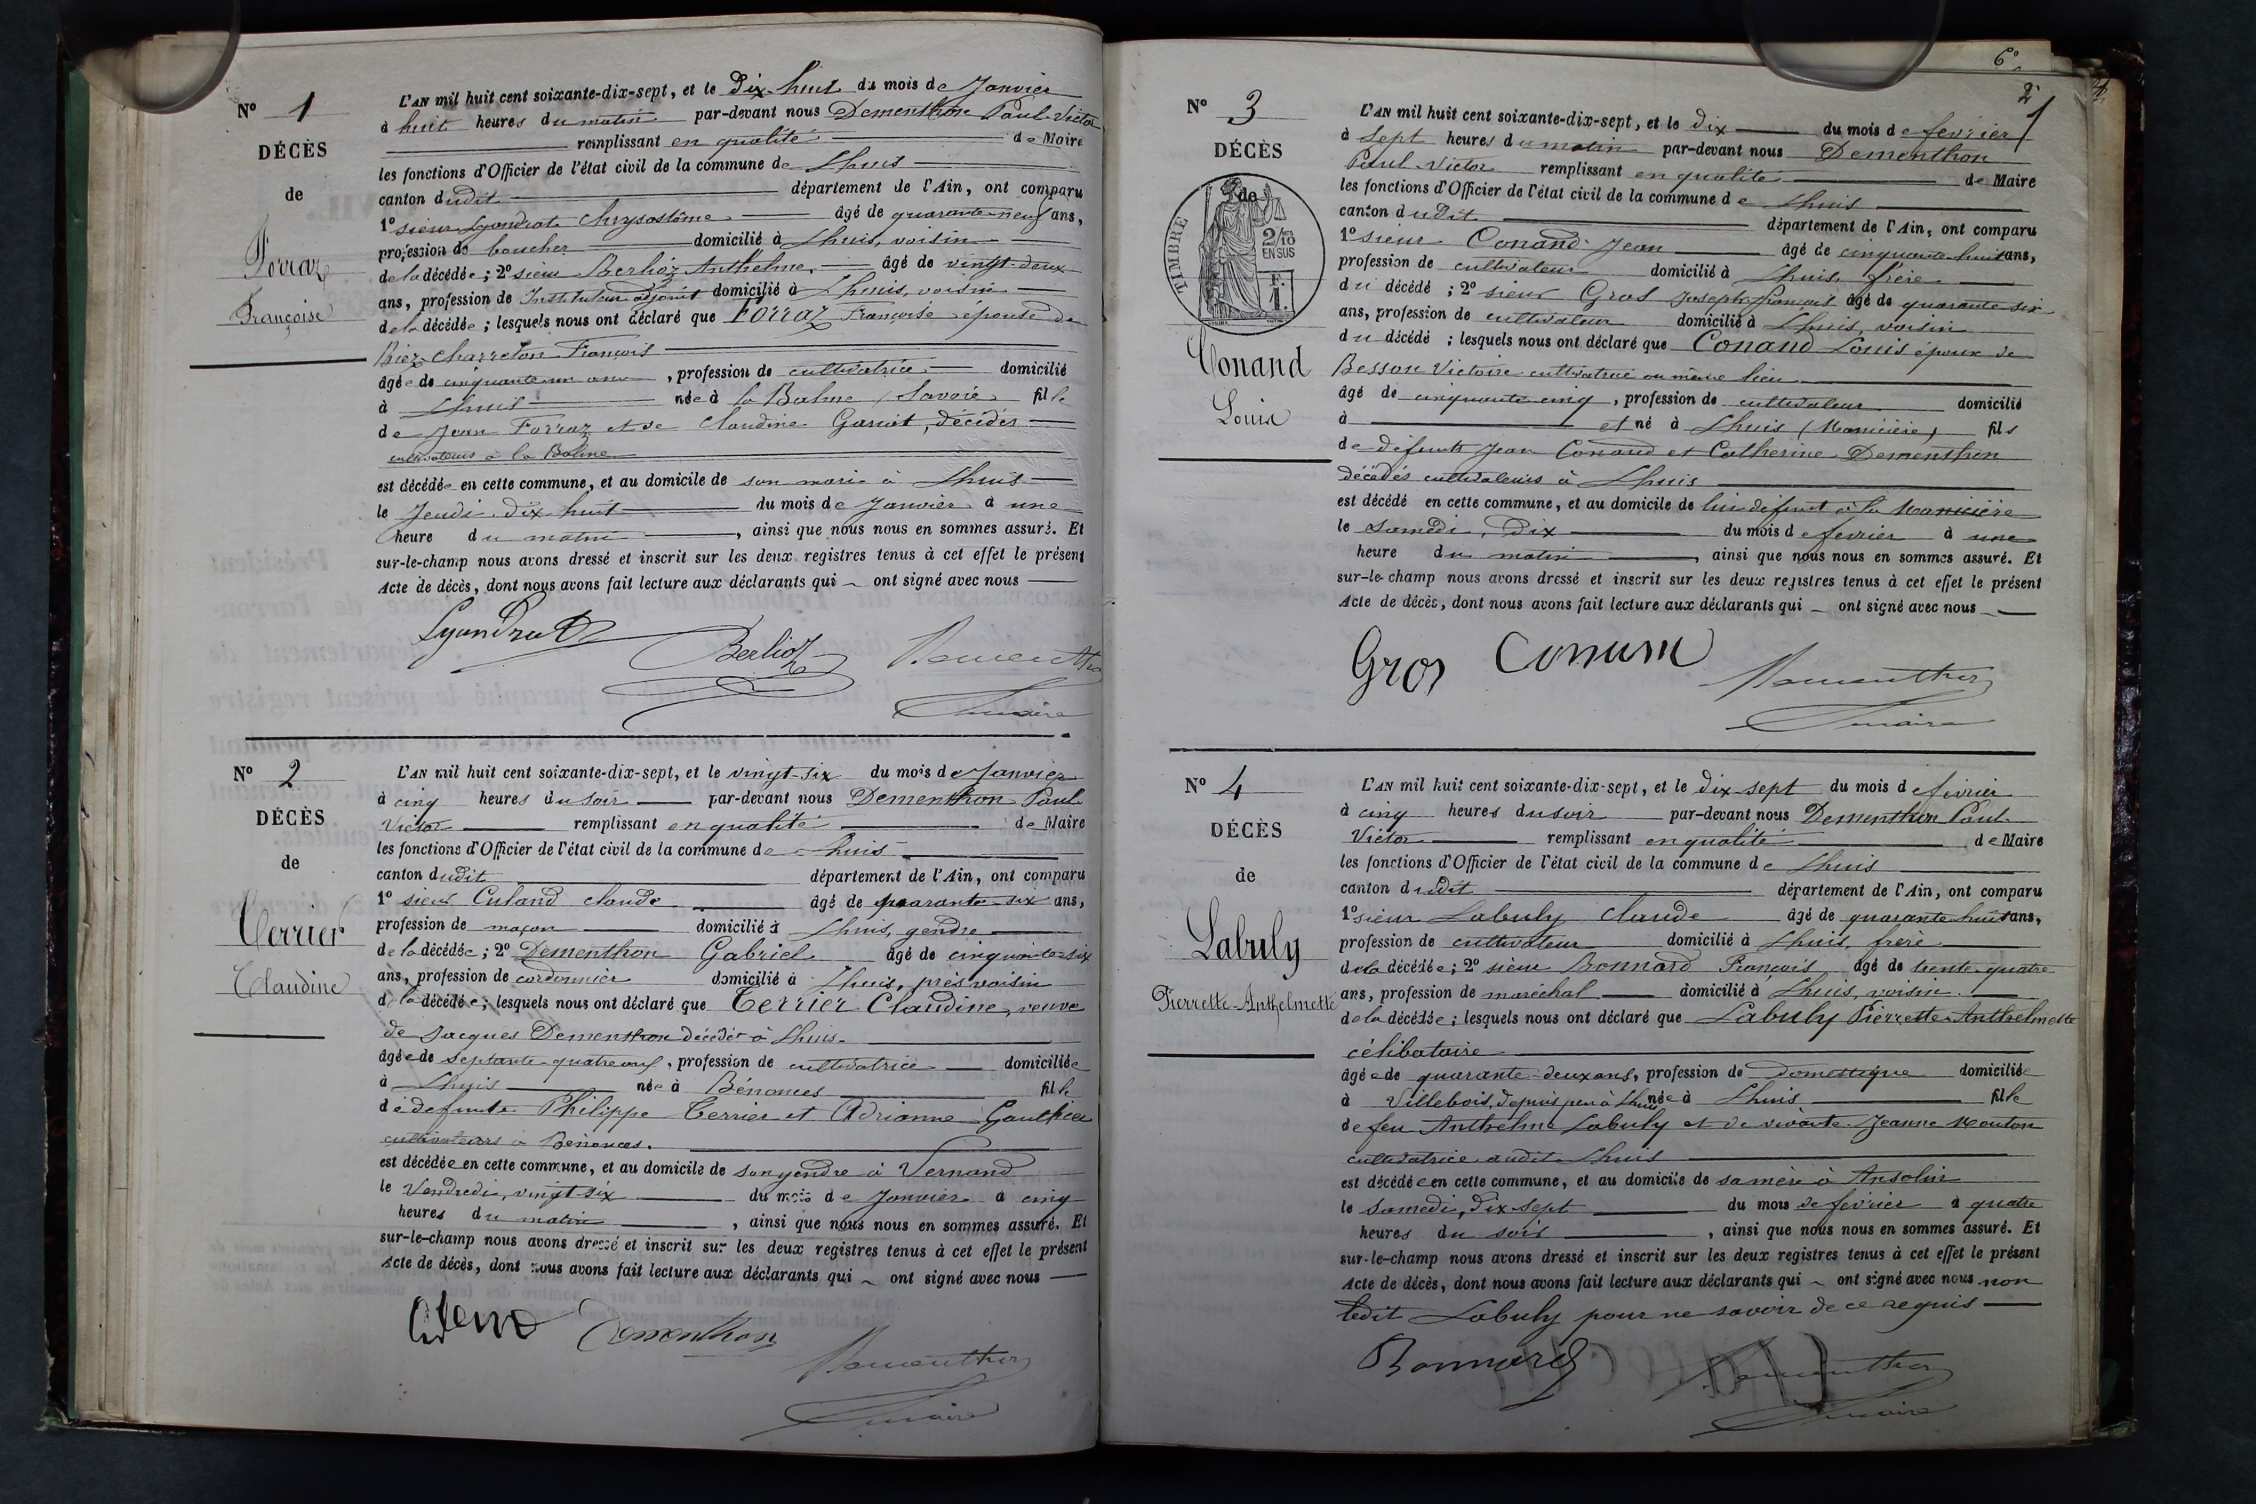 N° 1
DÉCÈS
de
Forraz
Françoise
L'AN mil huit cent soixante-dix-sept, et le Dix huit du mois de Janvier
à huit heures du matin par-devant nous Dementhon Paul-Victor
remplissant en qualité de Maire
les fonctions d'Officier de l'état civil de la commune de Lhuis
canton dudit département de l'Ain, ont comparu
1° sieur Lyondrat Chrysostôme âgé de quarante-neuf ans,
profession de boucher domicilié à Lhuis, voisin
de la décédée; 2° sieur Berlioz Anthelme, âgé de vingt-deux
ans, profession de Instituteur adjoint domicilié à Lhuis, voisin
de la décédée; lesquels nous ont déclaré que Forraz Françoise épouse de
Biez-Charreton François
âgée de cinquante un ans, profession de cultivatrice domicilié
à Lhuis née à la Balme (Savoie) fille
de Jean Forraz et de Claudine décédés
cultivateurs à la Balme
est décédée en cette commune, et au domicile de son mari à Lhuis
le Jeudi dix huit du mois de Janvier à une
heure du matin, ainsi que nous nous en sommes assuré. Et
sur-le-champ nous avons dressé et inscrit sur les deux registres tenus à cet effet le présent
Acte de décès, dont nous avons fait lecture aux déclarants qui ont signé avec nous
Lyondrat
Berlioz Dementhon
maire
N° 2
DÉCÈS
de
Terrier
Claudine
L'AN mil huit cent soixante-dix-sept, et le vingt-six du mois de Janvier
à cinq heures du soir par-devant nous Dementhon Paul
Victor remplissant en qualité de Maire
les fonctions d'Officier de l'état civil de la commune de Lhuis
canton dudit département de l'Ain, ont comparu
1° sieur Culand Claude âgé de quarante-six ans,
profession de maçon domicilié à Lhuis, gendre
de la décédée; 2° Dementhon Gabriel âgé de cinquante-six
ans, profession de cordonnier domicilié à Lhuis, près voisin
de la décédée; lesquels nous ont déclaré que Terrier Claudine, veuve
de Jacques Dementhon décédé à Lhuis.
âgée de septante-quatre ans, profession de cultivatrice domiciliée
à Lhuis née à Bénonces fille
de defunts Philippe Terrier et Adrianne Gauthier
cultivateurs à Bénonces.
est décédée en cette commune, et au domicile de son gendre à Vernand
le Vendredi, vingt six du mois de Janvier à cinq
heures du matin, ainsi que nous nous en sommes assuré. Et
sur-le-champ nous avons dressé et inscrit sur les deux registres tenus à cet effet le présent
Acte de décès, dont nous avons fait lecture aux déclarants qui ont signé avec nous
Dementhon
Dementhon
maire
6°
2°
N° 3
DÉCÈS
de
TIMBRE
2/10
EN SUS
F.
1.
Conand
Louis
L'AN mil huit cent soixante-dix-sept, et le dix du mois de février
à sept heures du matin par-devant nous Dementhon
Paul-Victor remplissant en qualité de Maire
les fonctions d'Officier de l'état civil de la commune de Lhuis
canton dudit département de l'Ain, ont comparu
1° sieur Conand Jean âgé de cinquante-huit ans,
profession de cultivateur domicilié à Lhuis, frère
du décédé; 2° sieur Gros Joseph-François âgé de quarante six
ans, profession de cultivateur domicilié à Lhuis, voisin
du décédé; lesquels nous ont déclaré que Conand Louis époux de
Besson Victoire cultivatrice au même lieu
âgé de cinquante cinq, profession de cultivateur domicilié
à et né à Lhuis (Manicière) fils
de défunts Jean Conand et Catherine Dementhon
décédés cultivateurs à Lhuis
est décédé en cette commune, et au domicile de lui défunt à la Manicière
le Samedi, Dix du mois de février à une
heure du matin, ainsi que nous nous en sommes assuré. Et
sur-le-champ nous avons dressé et inscrit sur les deux registres tenus à cet effet le présent
Acte de décès, dont nous avons fait lecture aux déclarants qui ont signé avec nous
Gros Dementhon
maire
N° 4
DÉCÈS
de
Labuly
Pierrette-Anthelmette
L'AN mil huit cent soixante-dix-sept, et le dix-sept du mois de février
à cinq heures du soir par-devant nous Dementhon Paul
Victor remplissant en qualité de Maire
les fonctions d'Officier de l'état civil de la commune de Lhuis
canton dudit département de l'Ain, ont comparu
1° sieur Labuly Claude âgé de quarante huit ans,
profession de cultivateur domicilié à Lhuis, frère
de la décédée; 2° sieur Bonnard François âgé de trente-quatre
ans, profession de maréchal domicilié à Lhuis, voisin.
de la décédée; lesquels nous ont déclaré que Labuly Pierrette-Anthelmette
célibataire
âgée de quarante-deux ans, profession de Domestique domiciliée
à Villebois, depuis peu à Lhuis née à Lhuis fille
de feu Anthelme Labuly et de vivante Jeanne Mouton
cultivatrice audit Lhuis
est décédée en cette commune, et au domicile de sa mère à Ansolin
le Samedi, dix sept du mois de février à quatre
heures du soir, ainsi que nous nous en sommes assuré. Et
sur-le-champ nous avons dressé et inscrit sur les deux registres tenus à cet effet le présent
Acte de décès, dont nous avons fait lecture aux déclarants qui ont signé avec nous non
ledit Labuly pour ne savoir de ce requis
Bonnard Dementhon
maire